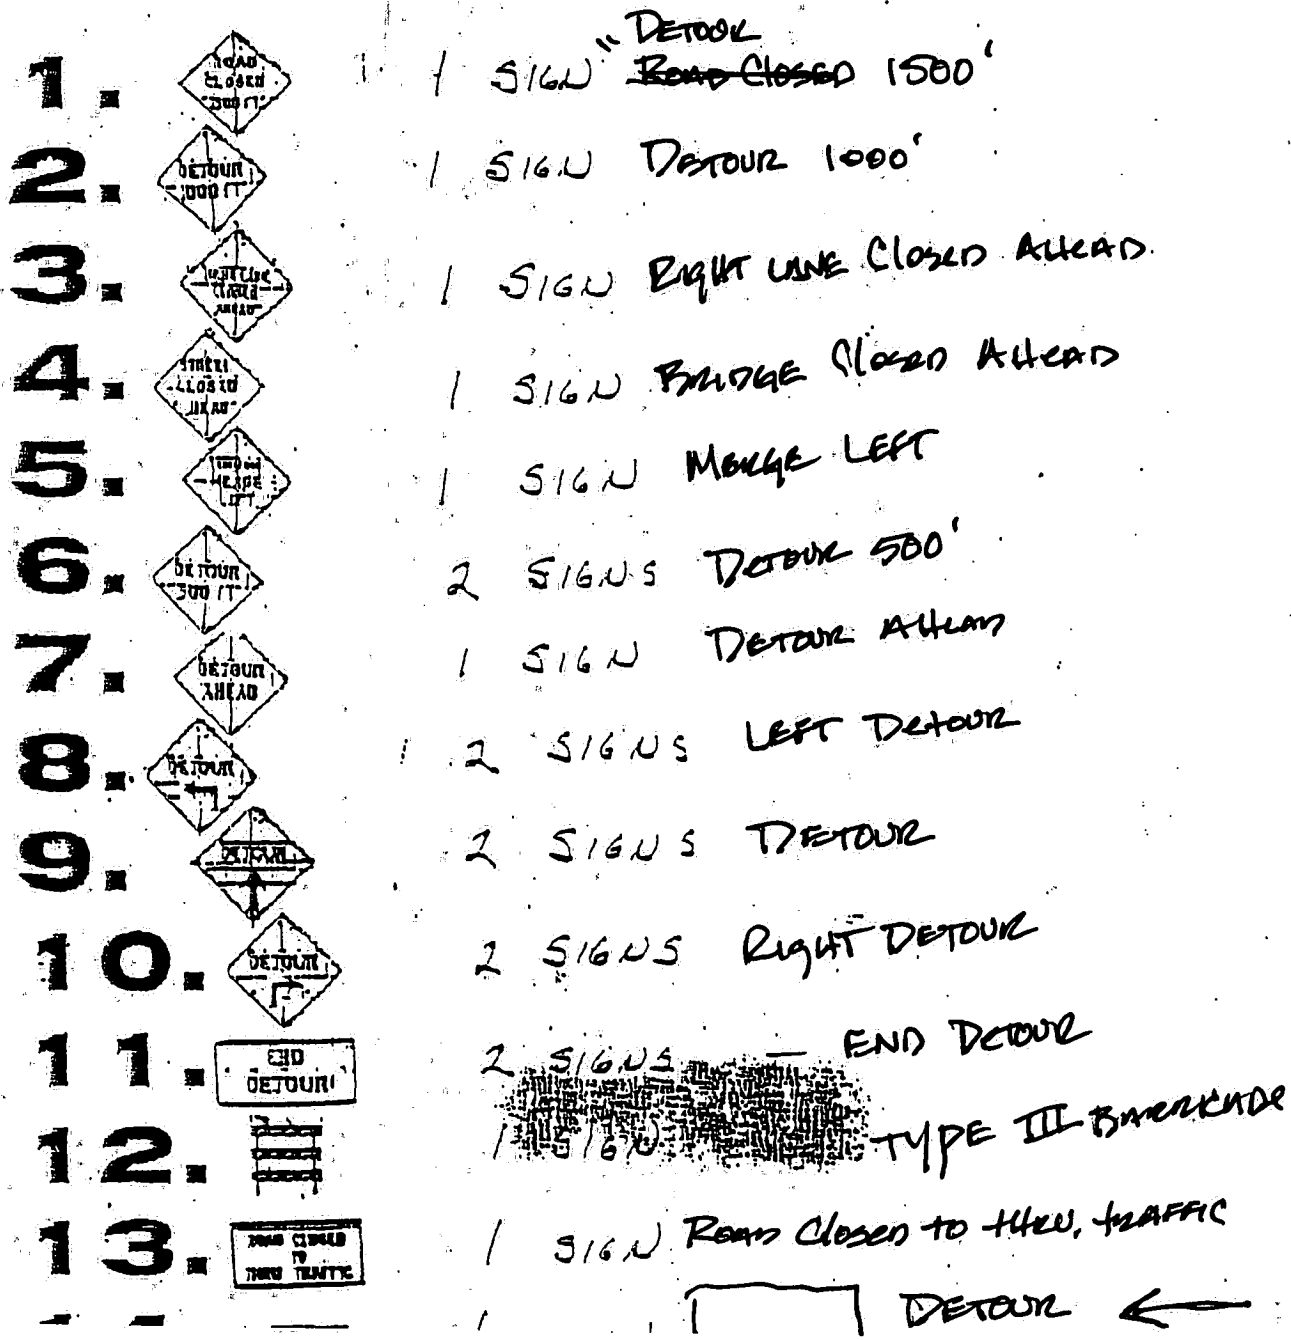 DETOUR
1. ROAD CLOSED 1 SIGN " ROAD CLOSED 1500'
2. DETOUR 1000 FT 1 SIGN DETOUR 1000'
3. CLOSED AHEAD 1 SIGN RIGHT LANE CLOSED AHEAD
4. STREET CLOSED AHEAD 1 SIGN BRIDGE CLOSED AHEAD
5. MERGE LEFT 1 SIGN MERGE LEFT
6. DETOUR 500 FT 2 SIGNS DETOUR 500'
7. DETOUR AHEAD 1 SIGN DETOUR AHEAD
8. DETOUR 2 SIGNS LEFT DETOUR
9. DETOUR 2 SIGNS DETOUR
10. DETOUR 2 SIGNS RIGHT DETOUR
11. END DETOUR 2 SIGNS — END DETOUR
12. 1 SIGN TYPE III BARRICADE
13. ROAD CLOSED TO THRU TRAFFIC 1 SIGN ROAD CLOSED TO THRU. TRAFFIC
1 DETOUR ←